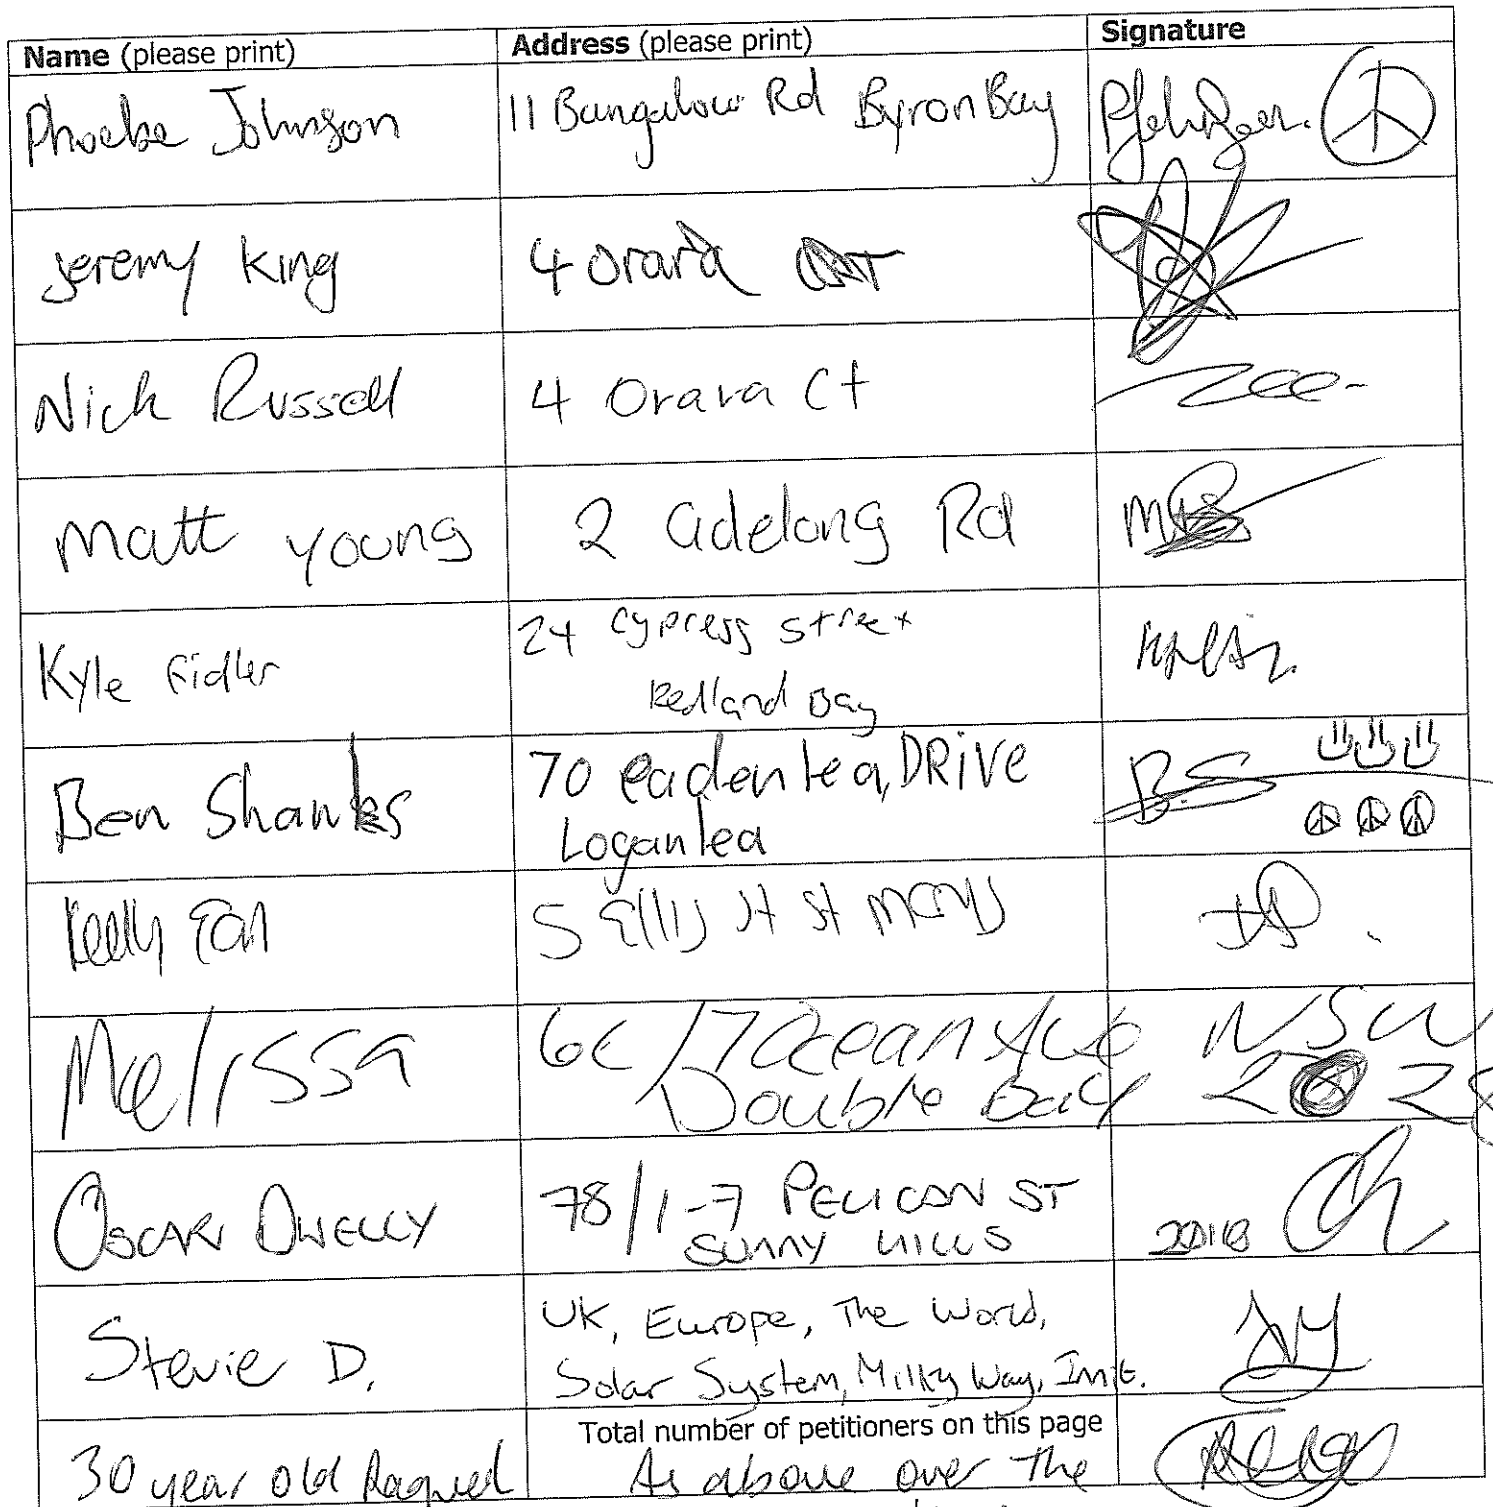 Name (please print) Address (please print) Signature
Phoebe Johnson 11 Bangalow Rd Byron Bay
Jeremy King 4 Orara
Nick Russell 4 Orara Ct
Matt Young 2 adelong Rd
Kyle Fidler 24 Cypress Street
Redland Bay
Ben Shanks 70 eaden lea, DRive B.S
Loganlea
Kelly 5 Ellis St St Marys
Melissa 6C/7 Ocean Ave NSW
Double Bay 2028
Oscar Dwelly 78/1-7 Pelican St
Surry Hills 2010
Stevie D. UK, Europe, The World,
Solar System, Milky Way, Init.
Total number of petitioners on this page
30 year old Raquel As above over The